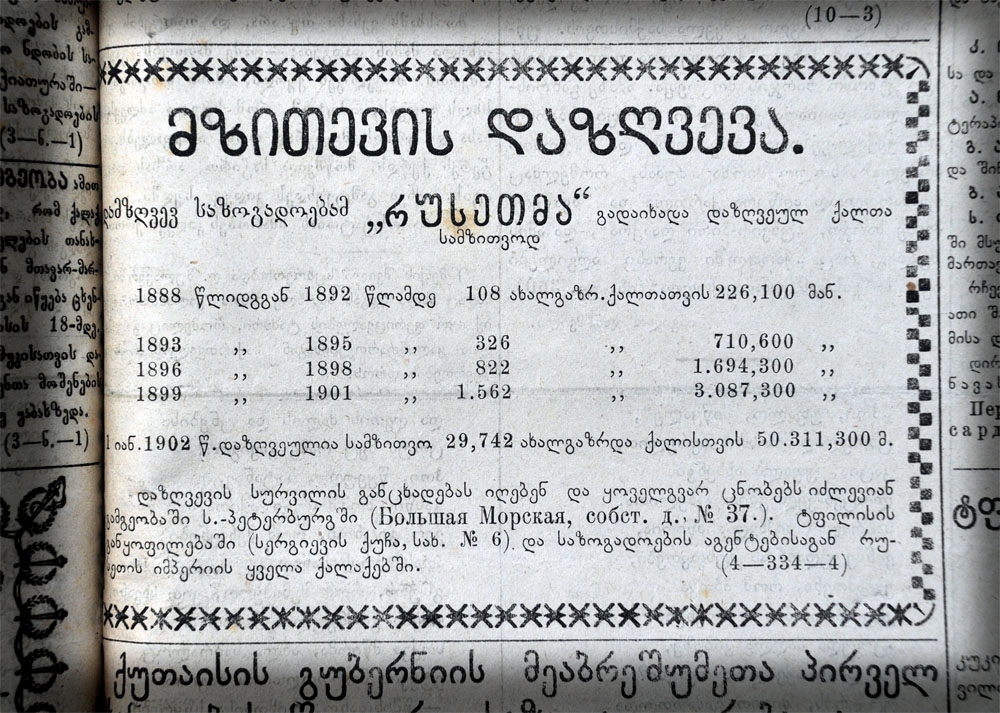 (10—3)
მზითევის დაზღვევა.
დამზღვევ საზოგადოებამ „რუსეთმა“ გადაიხადა დაზღვეულ ქალთა
სამზითვოდ
1888 წლიდგგან 1892 წლამდე 108 ახალგაზრ. ქალთათვის 226,100 მან.
1893 „ 1895 „ 326 „ 710,600 „
1896 „ 1898 „ 822 „ 1.694,300 „
1899 „ 1901 „ 1.562 „ 3.087,300 „
1 იან. 1902 წ. დაზღვეულია სამზითვო 29,742 ახალგაზრდა ქალისთვის 50.311,300 მ.
დაზღვევის სურვილის განცხადებას იღებენ და ყოველგვარ ცნობებს იძლევიან
გამგეობაში ს.-პეტერბურგში (Большая Морская, собст. д., № 37.). ტფილისის
განყოფილებაში (სერგიევის ქუჩა, სახ. № 6) და საზოგადოების აგენტებისაგან რუ-
სეთის იმპერიის ყველა ქალაქებში. (4—334—4)
ქუთაისის გუბერნიის მეაბრეშუმეთა პირველ
ნდობის
ქიათურაში—
საზოგადოების
(3—ნ.—1)
ამით
რომ ქალაქ
თანახ-
მთავარ-მარ-
იწყება ცხენ-
18-მდე.
(3—ნ.—1)
და
ტერაპ-
და
ში
მართავ
ათი
მისა